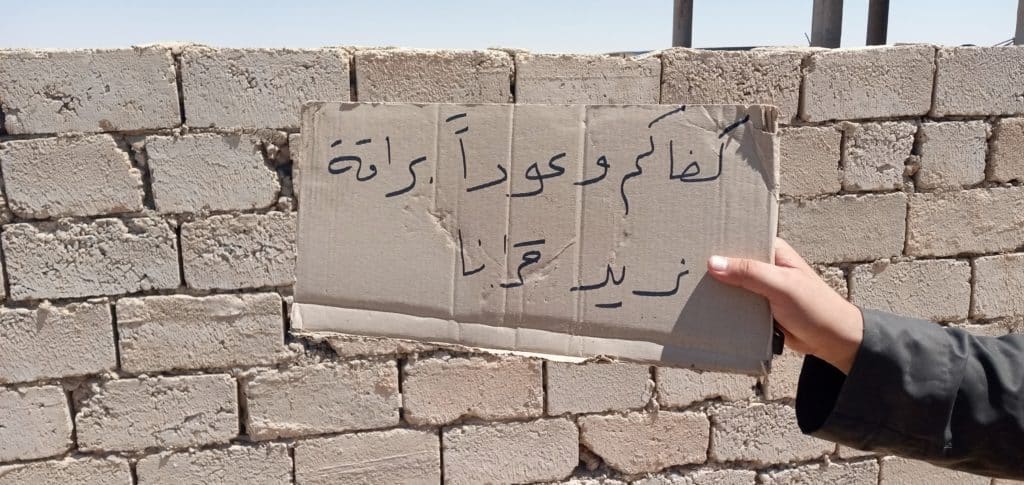 كفاكم وعوداً براقة
نريد قرانا